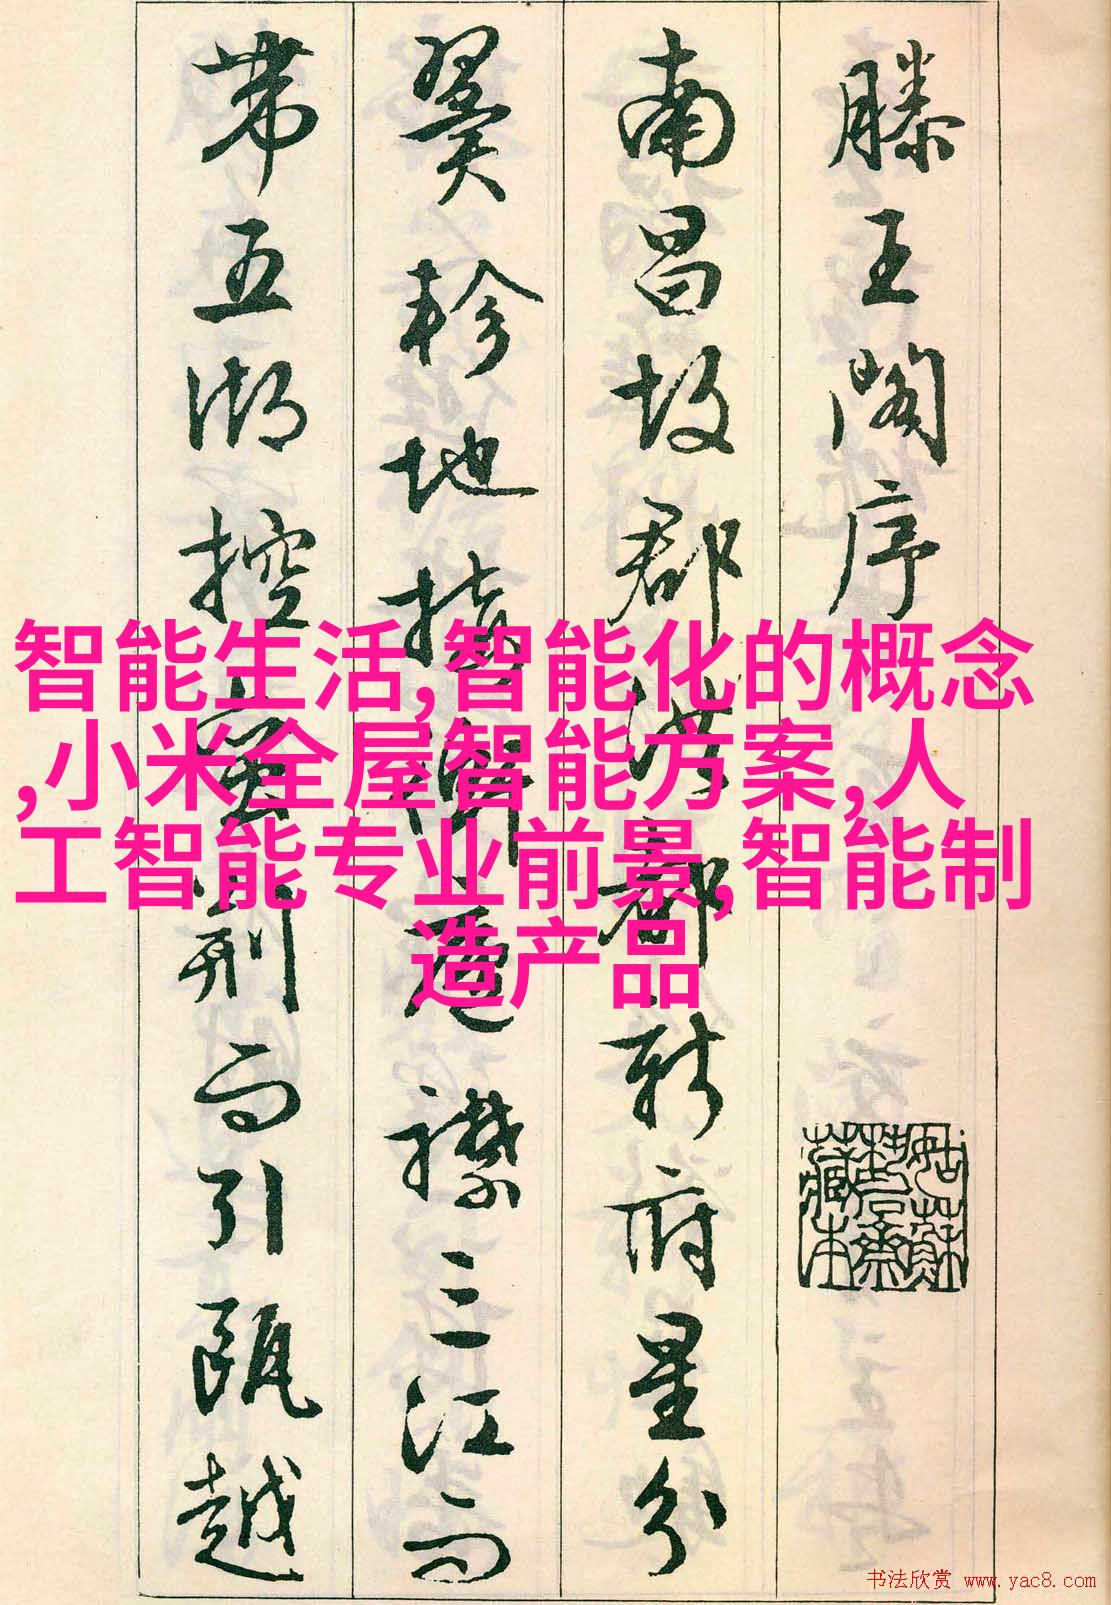 滕王閣序
南昌故郡洪都新府星分
翼軫地接衡廬襟三江而
帶五湖控蠻荊而引甌越
智能生活,智能化的概念
,小米全屋智能方案,人
工智能专业前景,智能制
造产品
书法欣赏 www.yac8.com